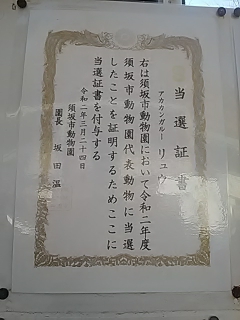 当選証書
アカカンガルー リュウ
右は須坂市動物園において令和二年度
須坂市動物園代表動物に当選
したことを証明するためここに
当選証書を付与する
令和二年三月二十四日
須坂市動物園
園長 坂田温